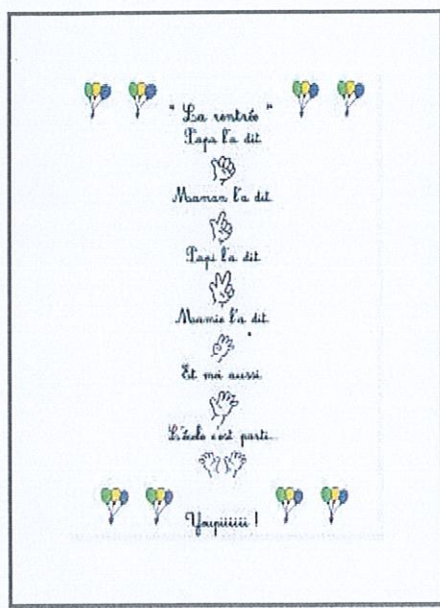 " La rentrée "
Papa l'a dit.
Maman l'a dit.
Papi l'a dit.
Mamie l'a dit.
Et moi aussi.
L'école c'est parti...
Youpiiiiii !